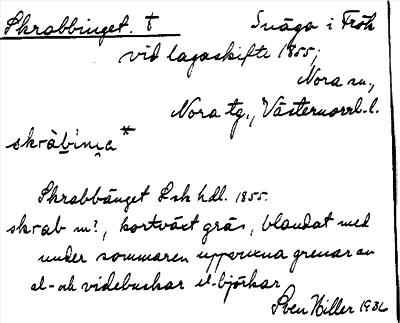 Skrabbinget. † Svåga i Frök
vid lagaskifte 1855;
Nora sn.,
Nora tg., Västernorrl. l.
Skrabbänget Lsk hdl. 1855.
skrab m?, kortväxt gräs, blandat med
under sommaren uppvuxna grenar av
al- och videbuskar el. björkar
Sven Hiller 1936